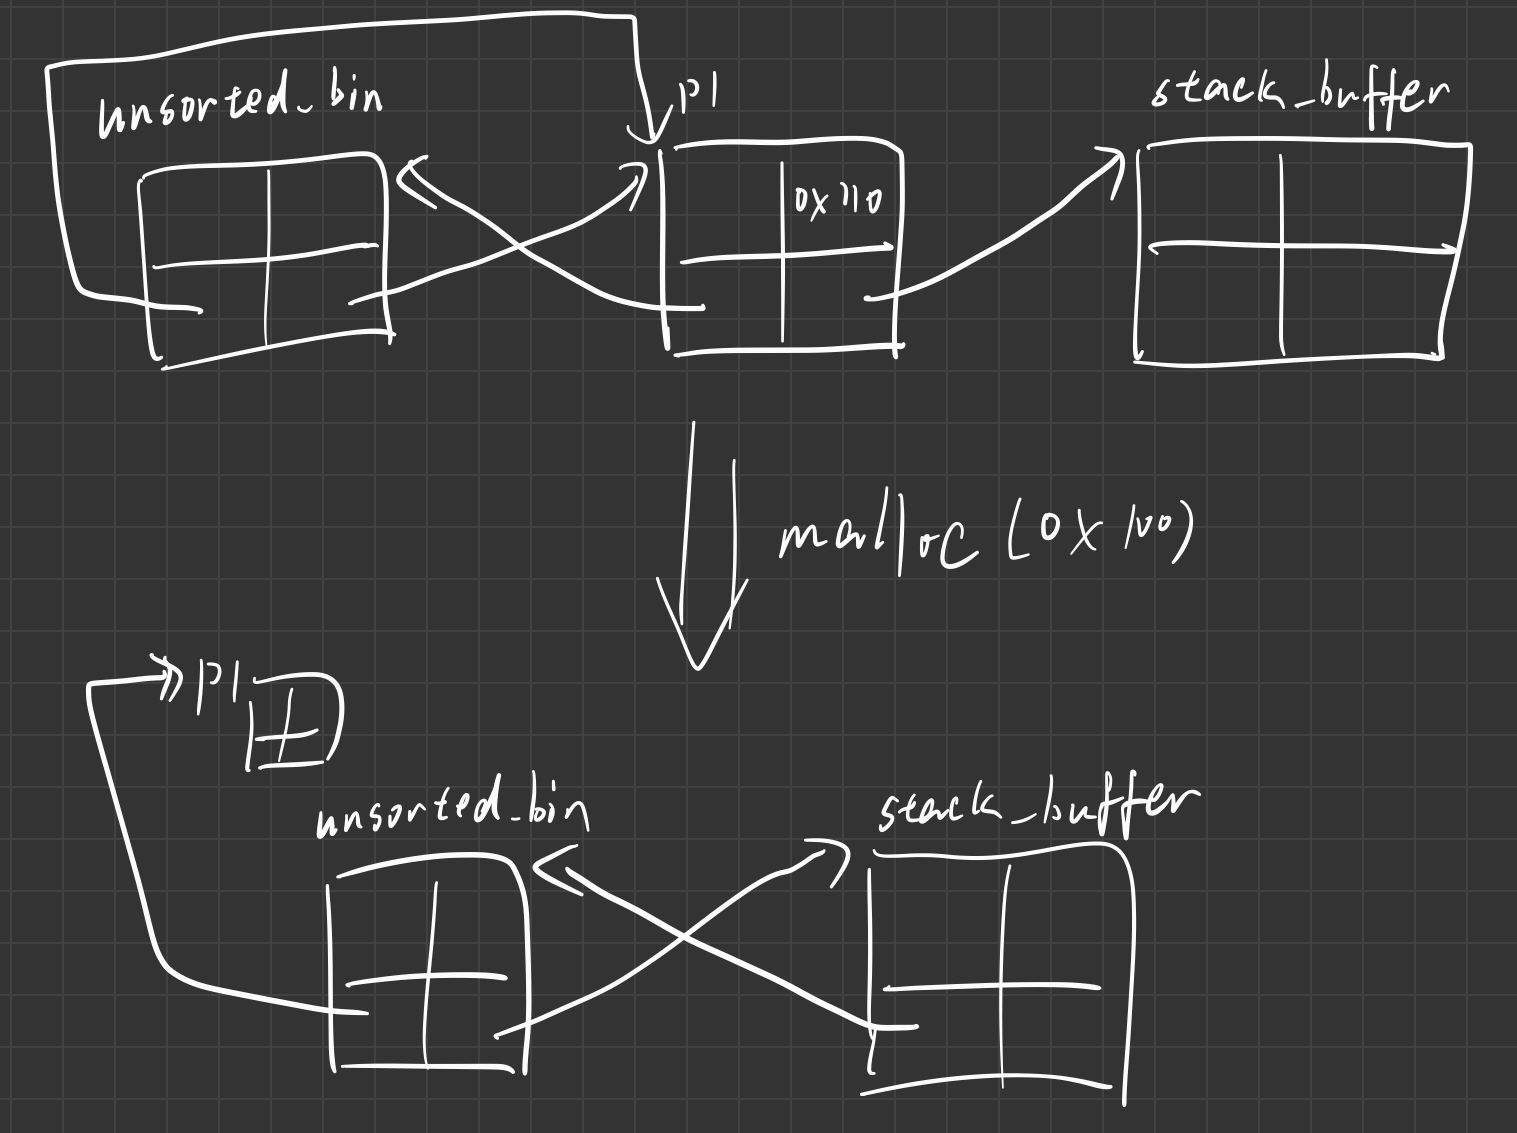 unsorted_bin
p1
stack_buffer
0x110
malloc(0x100)
p1
unsorted_bin
stack_buffer